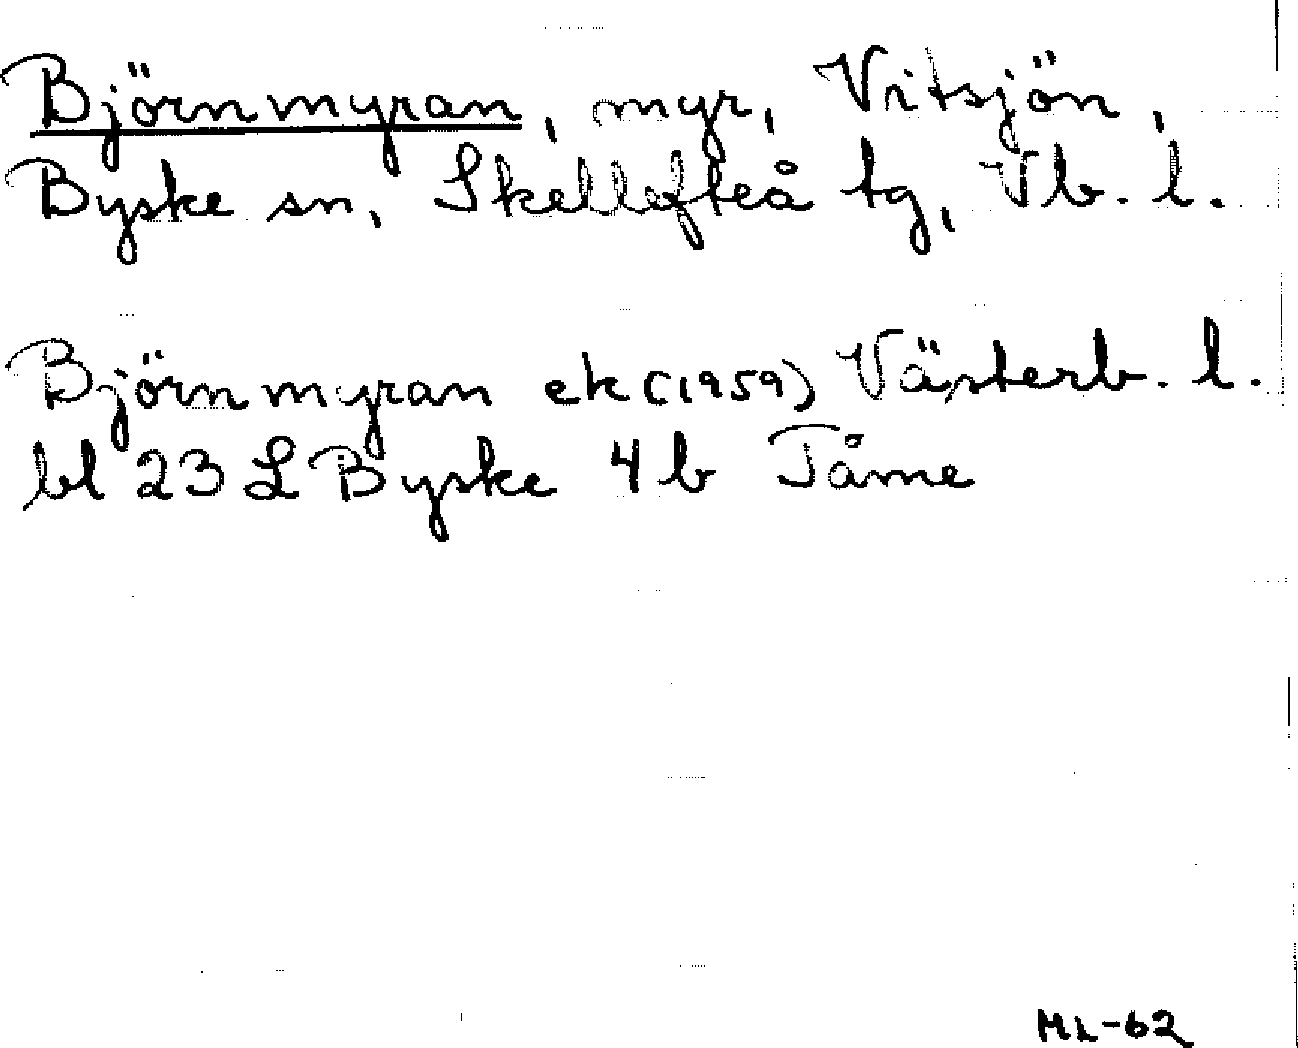 Björnmyran, myr, Vitsjön,
Byske sn, Skellefteå tg, Vb. l.
Björnmyran ek (1959) Västerb. l.
bl 23 L Byske 4 b Tåme
ML-62